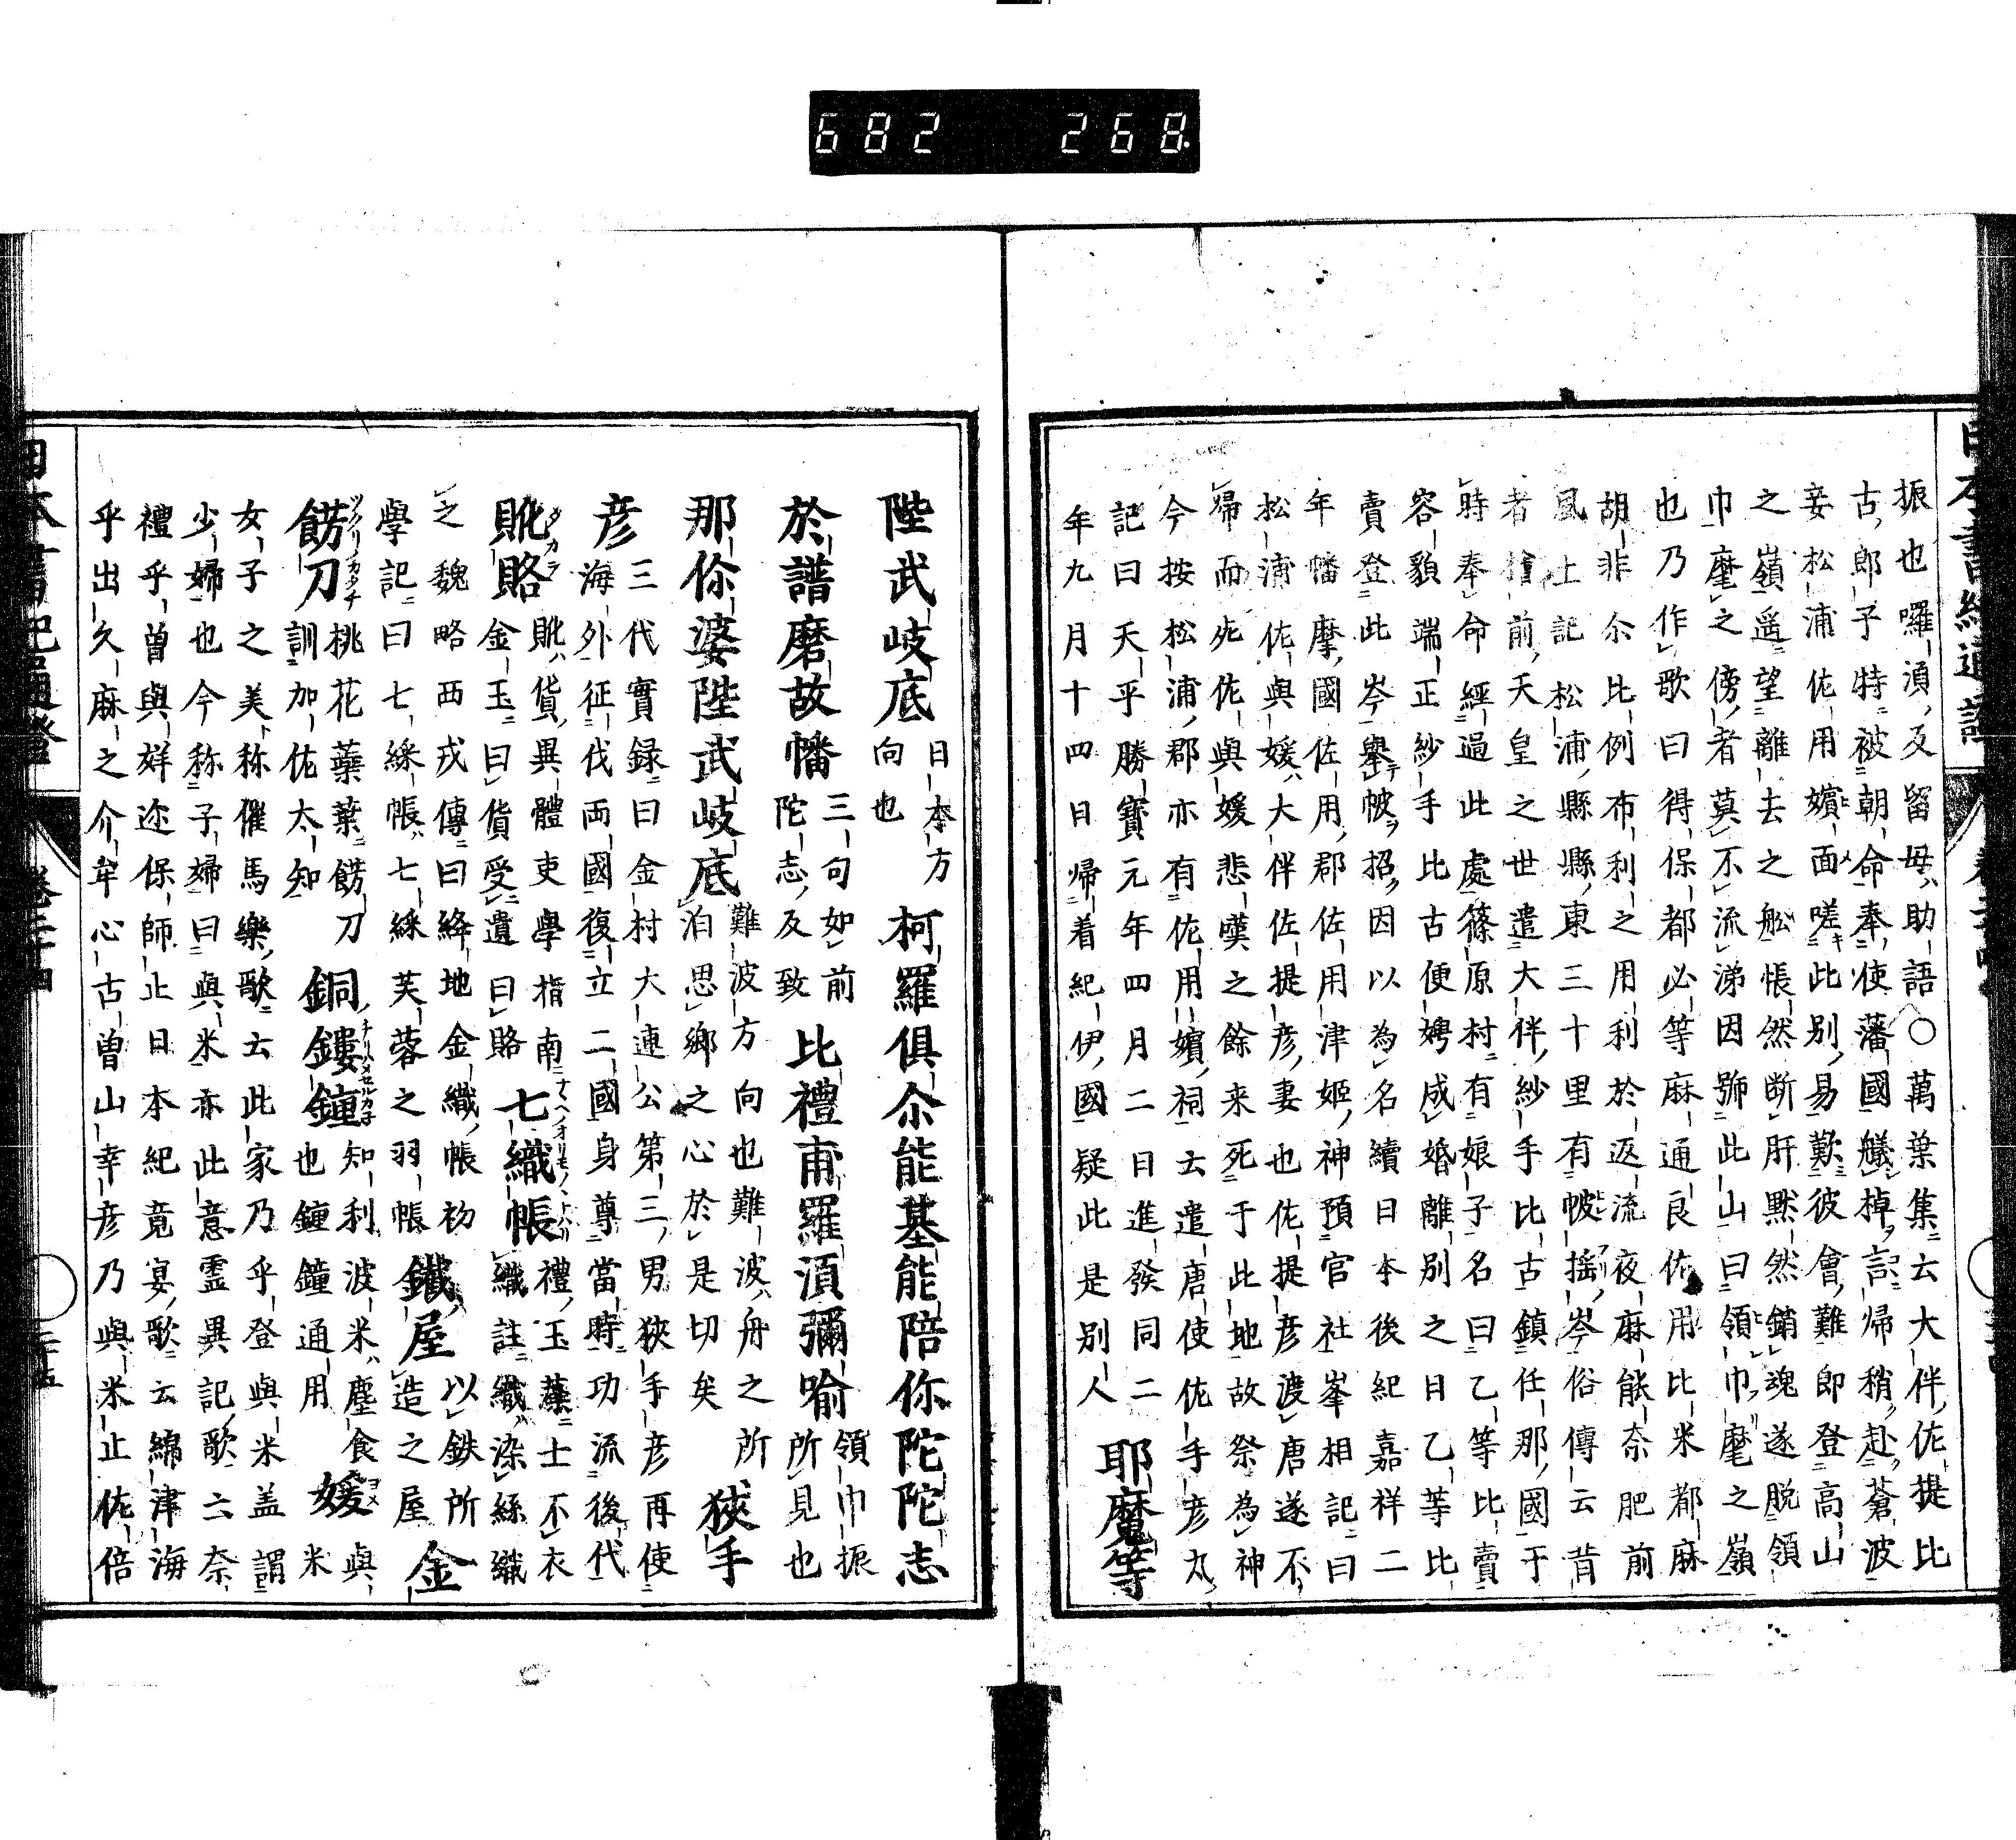 682 268
振也囉湏反留毋助語○萬葉集云大伴佐提比
古郎子特被朝命奉使藩國艤棹言歸稍赴蒼波
妾松浦佐用嬪面嗟此別易歎彼會難即登高山
之嶺遥望離去之舩悵然断肝黙然銷魂遂脱領
巾麾之傍者莫不流涕因號此山曰領巾麾之嶺
也乃作歌曰得保都必等麻通良佐用比米都麻
胡非尒比例布利之用利於返流夜麻能奈肥前
風土記松浦縣縣東三十里有帔揺岑俗傳云昔
者檜前天皇之世遣大伴紗手比古鎮任那國于
時奉命經過此處篠原村有娘子名曰乙等比賣
容貌端正紗手比古便娉成婚離別之日乙等比
賣登此岑舉帔招因以為名續日本後紀嘉祥二
年幡摩國佐用郡佐用津姬神預官社峯相記曰
松浦佐與媛大伴佐提彦妻也佐提彦渡唐遂不
歸而死佐與媛悲嘆之餘来死于此地故祭為神
今按松浦郡亦有佐用嬪祠云遣唐使佐手彦丸
記曰天平勝寶元年四月二日進發同二
年九月十四日帰着紀伊國疑此是別人
耶魔等
陛武岐底
日本方
向也
柯羅俱尒能基能陪你陀陀志
於譜磨故幡
三句如前
陀志反致
比禮甫羅湏彌喻
領巾振
所見也
那你婆陛武岐底
難波方向也難波舟之所
泊思鄉之心於是切矣
狹手
彦
三代實録曰金村大連公第三男狹手彦再使
海外征伐両國復立二國身尊當時功流後代
賍賂
タカラ
賍貨異體吏學指南
金玉曰貨受遺曰賂
七織帳
禮玉藻士不衣
織註織染絲織
之魏略西戎傳曰絳地金織帳初
學記曰七綵帳七綵芙蓉之羽帳
鐵屋
以鉄所
造之屋
金
餝刀
桃花蘂葉餝刀
訓加佐太知
銅鏤鍾
知利波米塵食
也鍾鐘通用
媛
ヨメ
與
米
女子之美称催馬樂歌云此家乃乎登與米盖謂
少婦也今称子婦曰與米亦此意霊異記歌六奈
禮乎曽與娵迩保師止日本紀竟宴歌云綿津海
乎出久麻之介牟心古曽山幸彦乃與米止佐倍
日本書紀通證
卷二十四
二十五